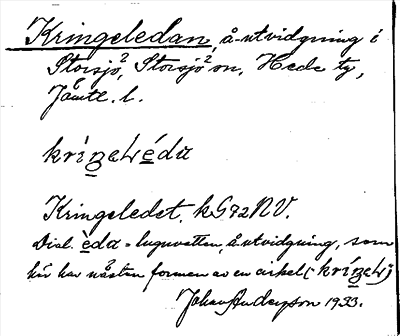 Kringeledan, å-utvidgning i
Storsjö², Storsjö² sn, Hede tg,
Jämtl. l.
kríŋelẃéda
Kringeledet, kG72NV.
Dial. èda = lugnvatten, åutvidgning, som
här har nästan formen av en cirkel (kríŋelẃ)
Johan Anderzson 1933.